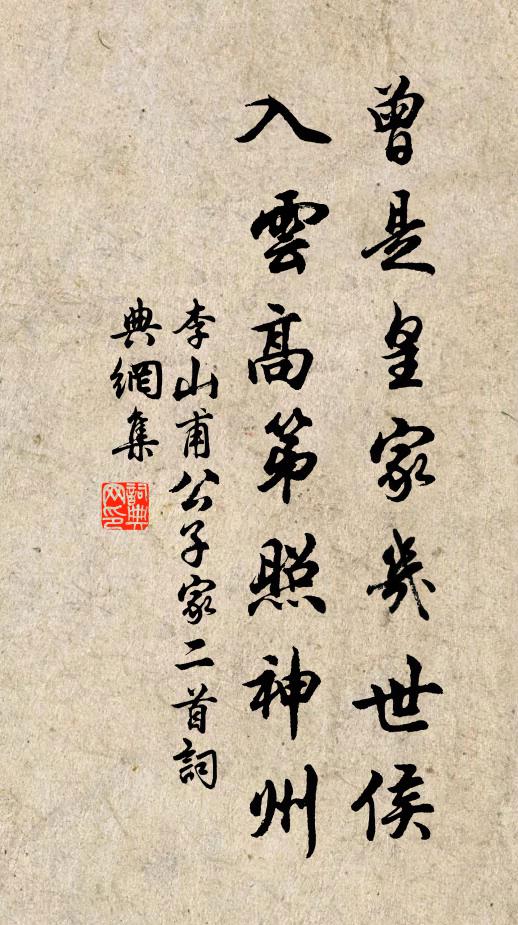 曾是皇家幾世侯
入雲高第照神州
李山甫公子家二首詞
典網集
詞典
网印